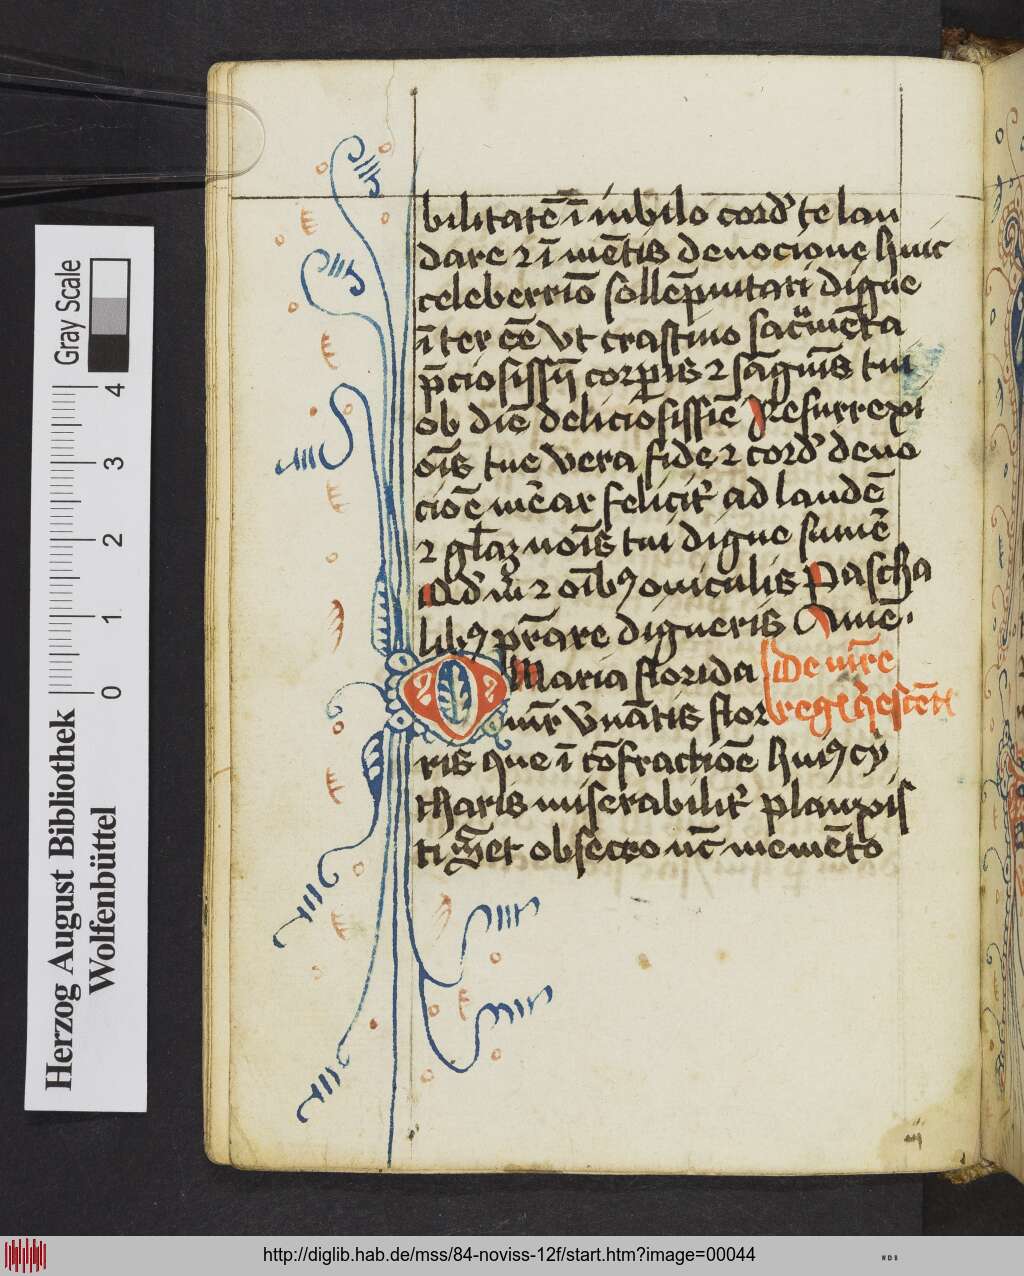 bilitatē ī iubilo cord᷒ te lau
dare ⁊ ī mētis deuocione huic
celeberrīo sollēpnitati digne
īter eē vt crastino sacͣmēta
p̄ciosissīj corꝑis ⁊ sāgūis tui
ob diē deliciosissīe Resurrexi
ōis tue vera fide ⁊ cord᷒ deuo
ciōe mēar felicit᷒ ad laudē
⁊ gl̄az nōis tui digne sumē
Ad᷒ m̄ ⁊ oīb⁹ ouiculis Pascha
lib⁹ p̄rare digneris Amē·
O Maria florida De m̄re
flor
ris que ī cōfractiōe hui⁹ cy
tharis miserabilit᷒ planxis
ti Set obsecro nc̄ memēto
Herzog August Bibliothek
Wolfenbüttel
Gray Scale
0 1 2 3 4
http://diglib.hab.de/mss/84-noviss-12f/start.htm?image=00044